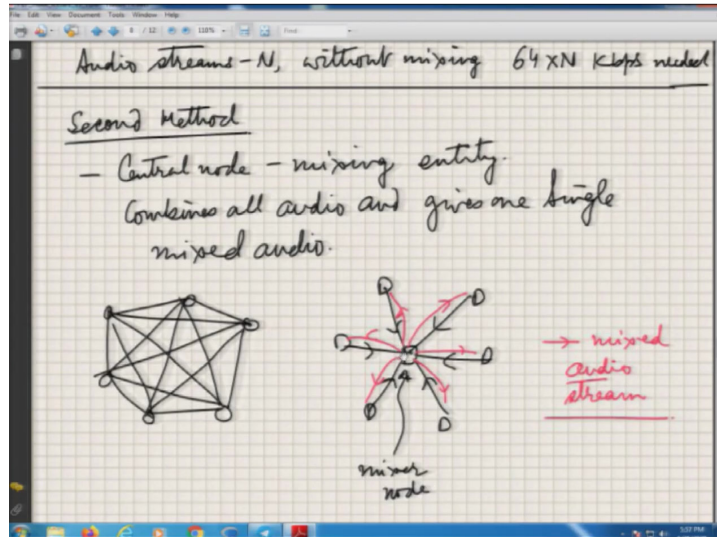 File Edit View Document Tools Window Help
8 / 12 110% Find
Audio streams - N, without mixing 64 x N Kbps needed
Second Method
— Central node - mixing entity.
Combines all audio and gives one single
mixed audio.
→ mixed
audio
stream
mixer
node
5:57 PM